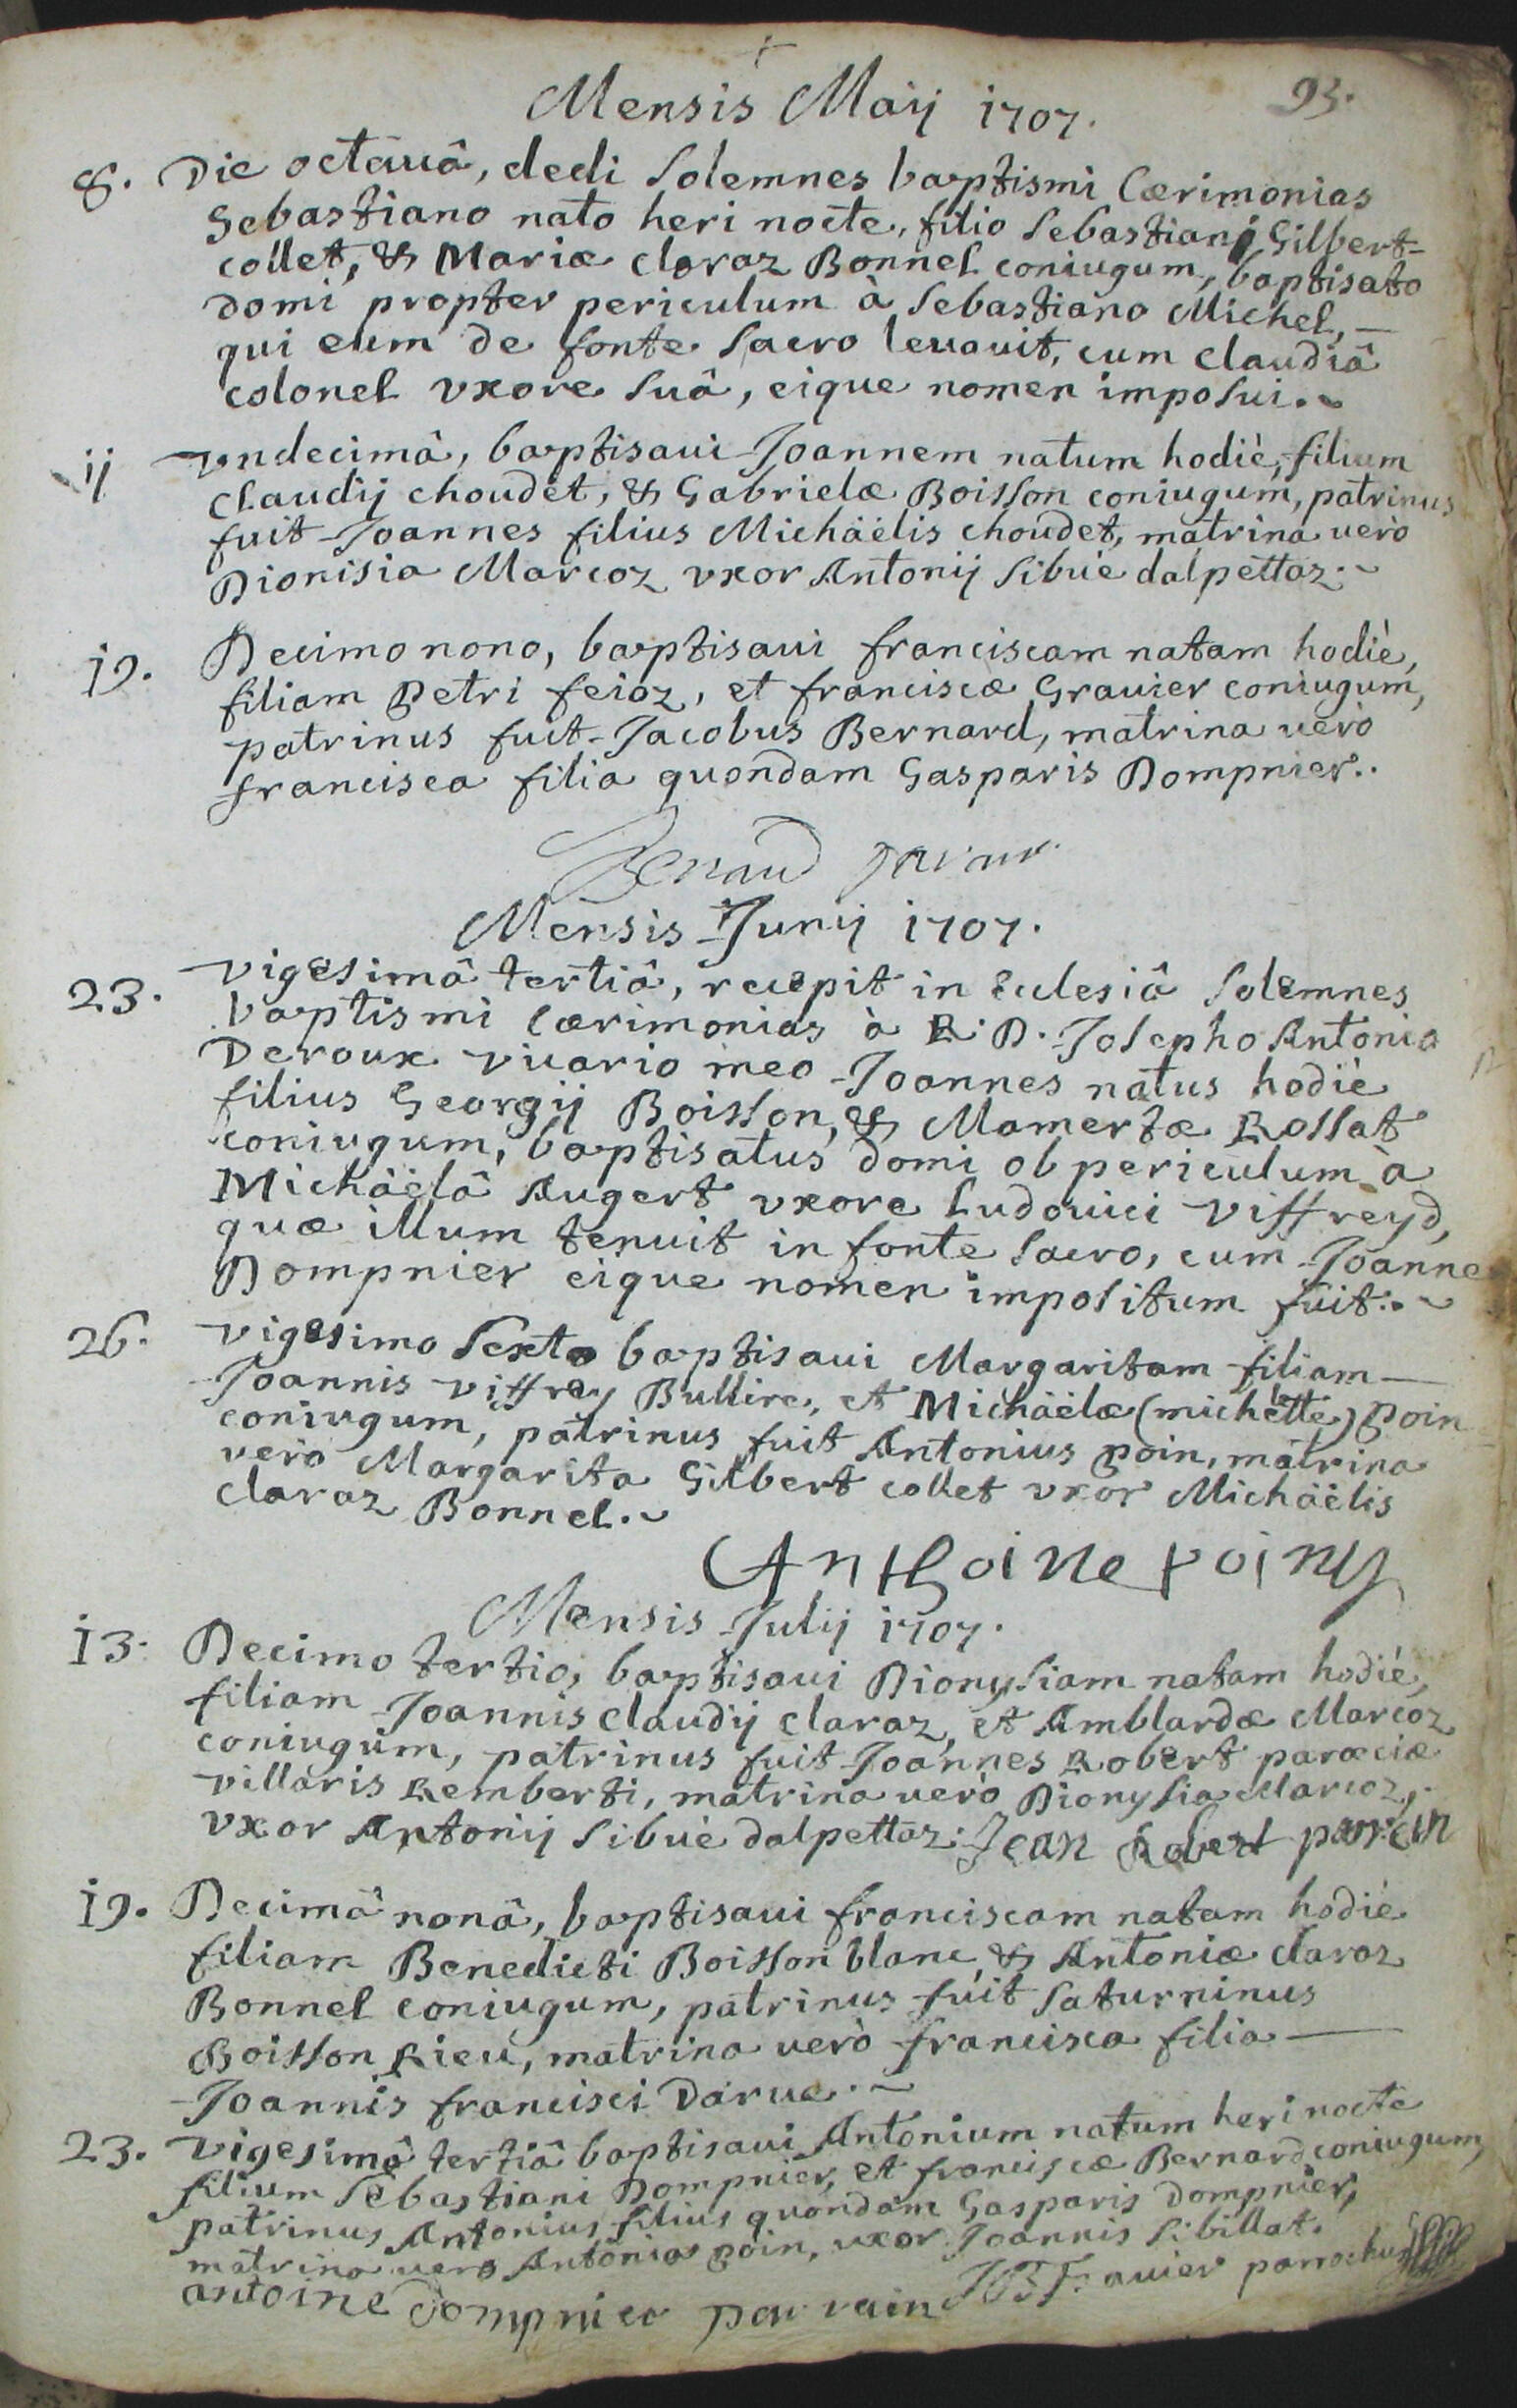 Mensis Maij 1707.
93.
8. Die octauâ, dedi Solemnes baptismi Cærimonias
Sebastiano nato heri nocte, filio Sebastiani Gilbert-
collet, & Mariæ claraz Bonnel coniugum, baptisato
domi propter periculum à Sebastiano Michel, —
qui eum de fonte Sacro leuauit, cum claudiâ
colonel vxore Suâ, eique nomen imposui.~
ij vndecimâ, baptisaui Joannem natum hodiè, filium
Claudij choudet, & Gabrielæ Boisson coniugum, patrinus
fuit Joannes filius Michäélis choudet, matrina uerò
Dionisia Marcoz vxor Antonij Sibüé dalpettaz.~
19. Decimo nono, baptisaui franciscam natam hodiè,
filiam Petri feioz, et franciscæ Grauier coniugum,
patrinus fuit Jacobus Bernard, matrina uerò
francisca filia quondam Gasparis Dompnier..
Mensis Junij 1707.
23. vigesimâ tertiâ, recepit in Ecclesiâ Solemnes
baptismi Cærimonias à R. D. Josepho Antonio
Deroux vicario meo Joannes natus hodiè
filius Georgij Boisson, & Mamertæ Rossat
coniugum, baptisatus domi ob periculum à
Michäélâ Augert vxore Ludouici Viffreyd,
quæ illum tenuit in fonte Sacro, cum Joanne
Dompnier eique nomen impositum fuit.~
26. vigesimo Sexto baptisaui Margaritam filiam —
Joannis Viffrey Bullire, et Michäélæ (michette) Poin
coniugum, patrinus fuit Antonius poin, matrina
verò Margarita Gilbert collet vxor Michäélis
claraz Bonnel.~
Anthoine poiny
Mensis Julij 1707.
13. Decimo tertio, baptisaui Dionysiam natam hodiè,
filiam Joannis Claudij claraz, et Amblardæ Marcoz
coniugum, patrinus fuit Joannes Robert parœciæ
villaris Remberti, matrina uerò Dionysia Marcoz,
vxor Antonij Sibüé dalpettaz. Jean Robert parrein
19. Decimâ nonâ, baptisaui franciscam natam hodiè
filiam Benedicti Boisson blanc, & Antoniæ claraz
Bonnel coniugum, patrinus fuit Saturninus
Boisson Rieu, matrina uerò francisca filia —
Joannis francisci Darue.~
23. vigesimâ tertiâ baptisaui Antonium natum heri nocte
filium Sebastiani Dompnier, et franciscæ Bernard coniugum,
patrinus Antonius filius quondam Gasparis Dompnier,
matrina uero Antonia poin, uxor Joannis Sibillat.
antoine dompnier parrain
parrochus